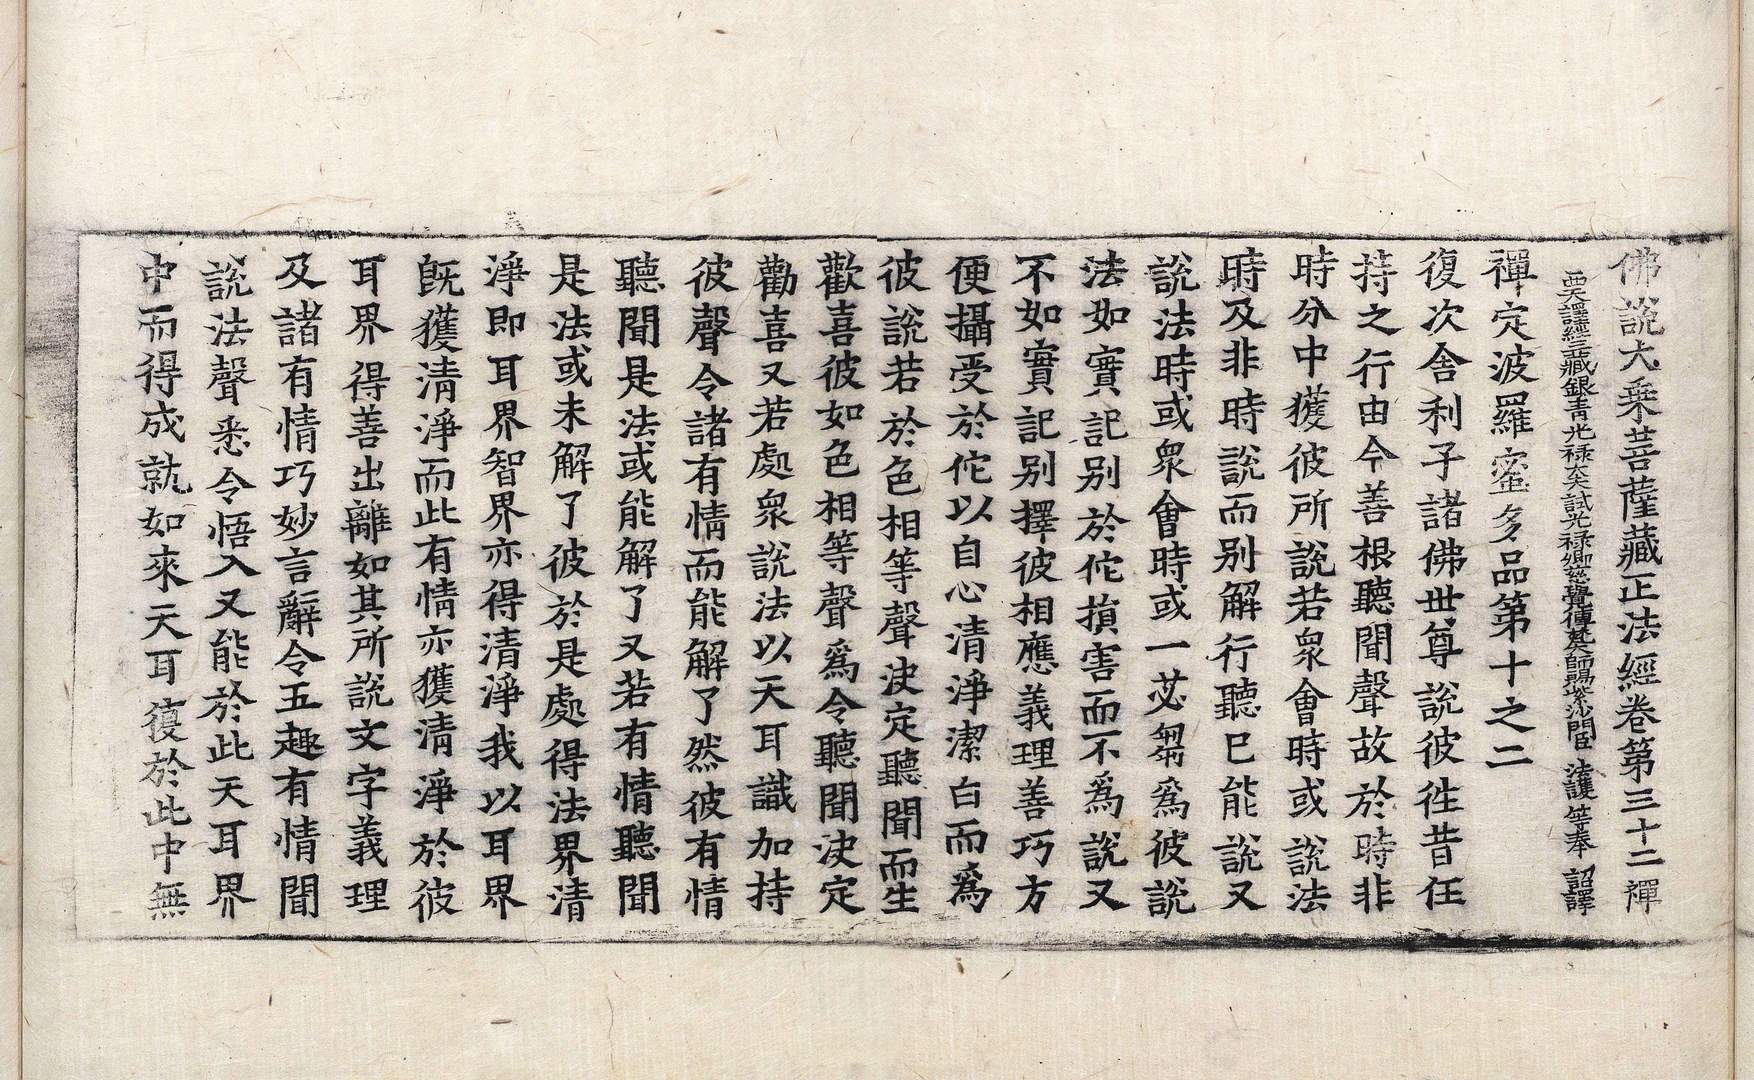 佛說大乘菩薩藏正法經卷第三十二 禪
西天譯經三藏銀青光祿大夫試光祿卿普覺傳梵大師賜紫沙門臣 法護 等奉 詔譯
禪定波羅蜜多品第十之二
復次舍利子諸佛世尊說彼徃昔任
持之行由今善根聽聞聲故於時非
時分中獲彼所說若衆會時或說法
時及非時說而別解行聽已能說又
說法時或衆會時或一苾芻爲彼說
法如實記別於佗損害而不爲說又
不如實記別擇彼相應義理善巧方
便攝受於佗以自心清淨潔白而爲
彼說若於色相等聲決定聽聞而生
歡喜彼如色相等聲爲令聽聞決定
勸喜又若處衆說法以天耳識加持
彼聲令諸有情而能解了然彼有情
聽聞是法或能解了又若有情聽聞
是法或未解了彼於是處得法界清
淨即耳界智界亦得清淨我以耳界
旣獲清淨而此有情亦獲清淨於彼
耳界得善出離如其所說文字義理
及諸有情巧妙言辭令五趣有情聞
說法聲悉令悟入又能於此天耳界
中而得成就如來天耳復於此中無